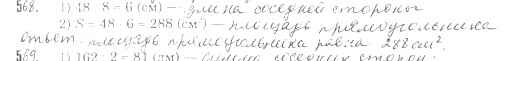 568. 1) 48 : 8 = 6 (см) — длина соседней стороны
2) S = 48 · 6 = 288 (см²) — площадь прямоугольника
ответ: площадь прямоугольника равна 288 см².
569. 1) 162 : 2 = 81 (дм) — сумма соседних сторон.